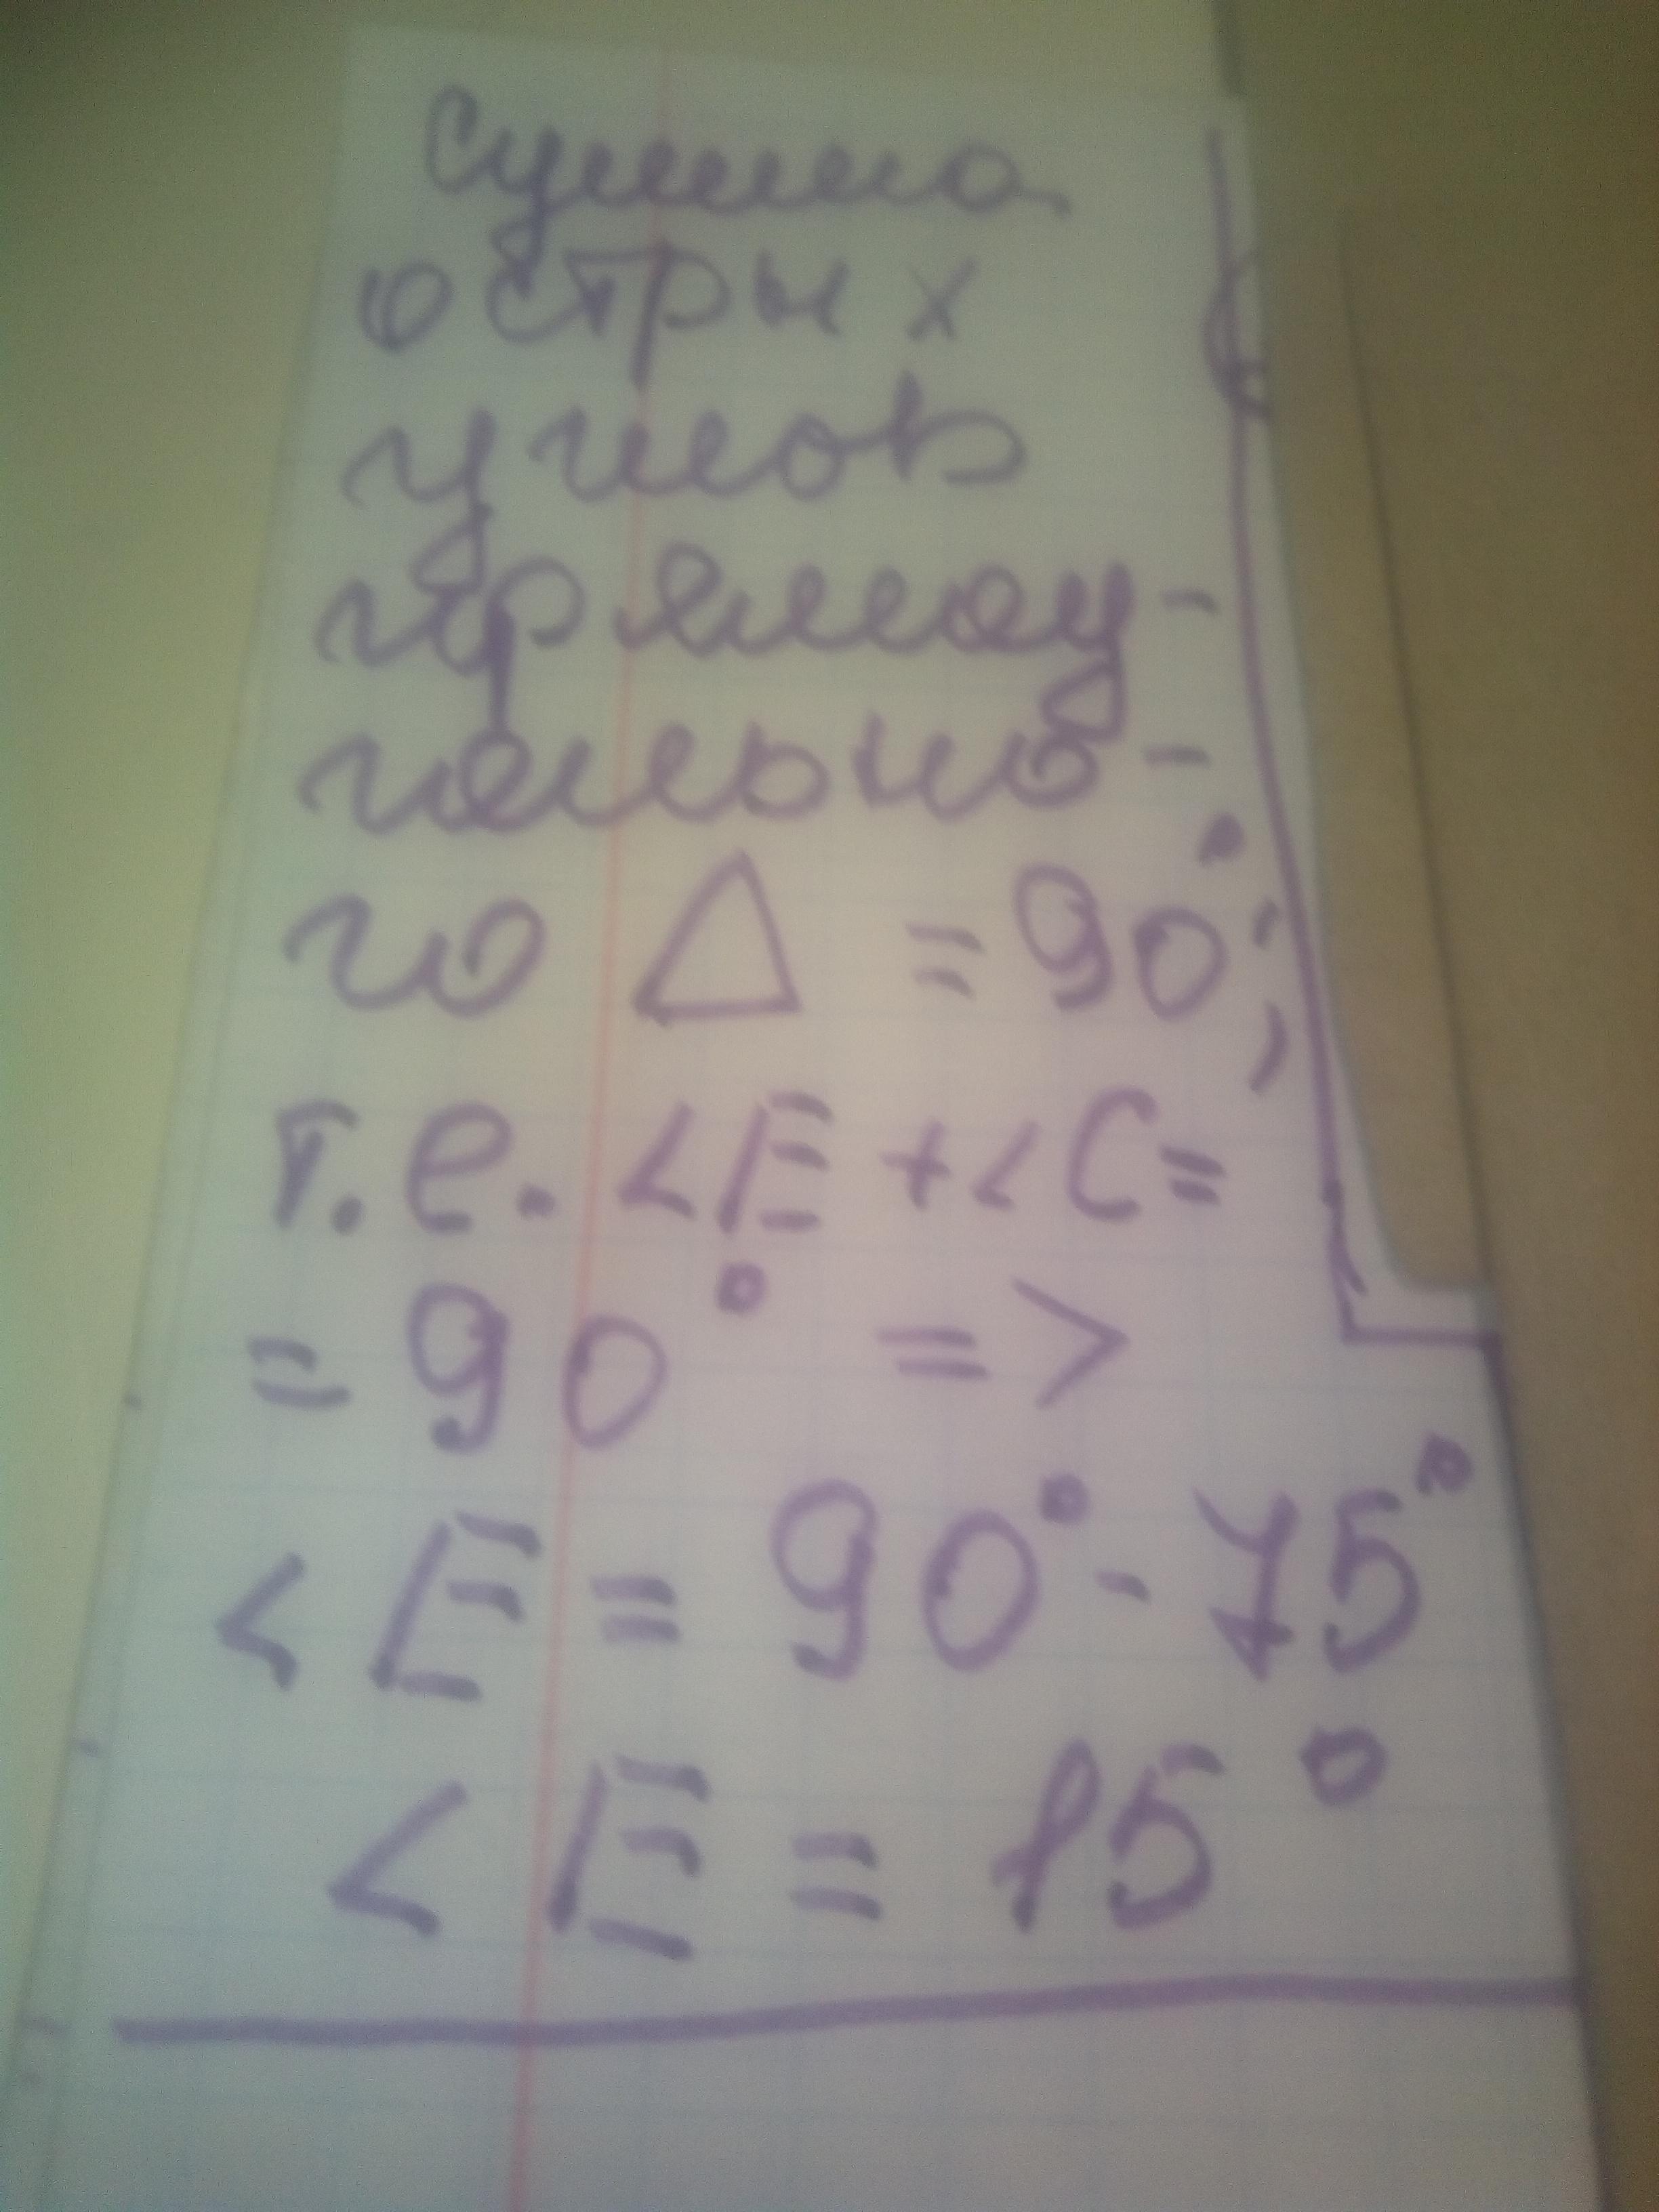 сумма
острых
углов
прямоу-
гольно-
го △ = 90°;
т.е. <E + <C =
= 90° =>
<E = 90° - 75°
<E = 15°